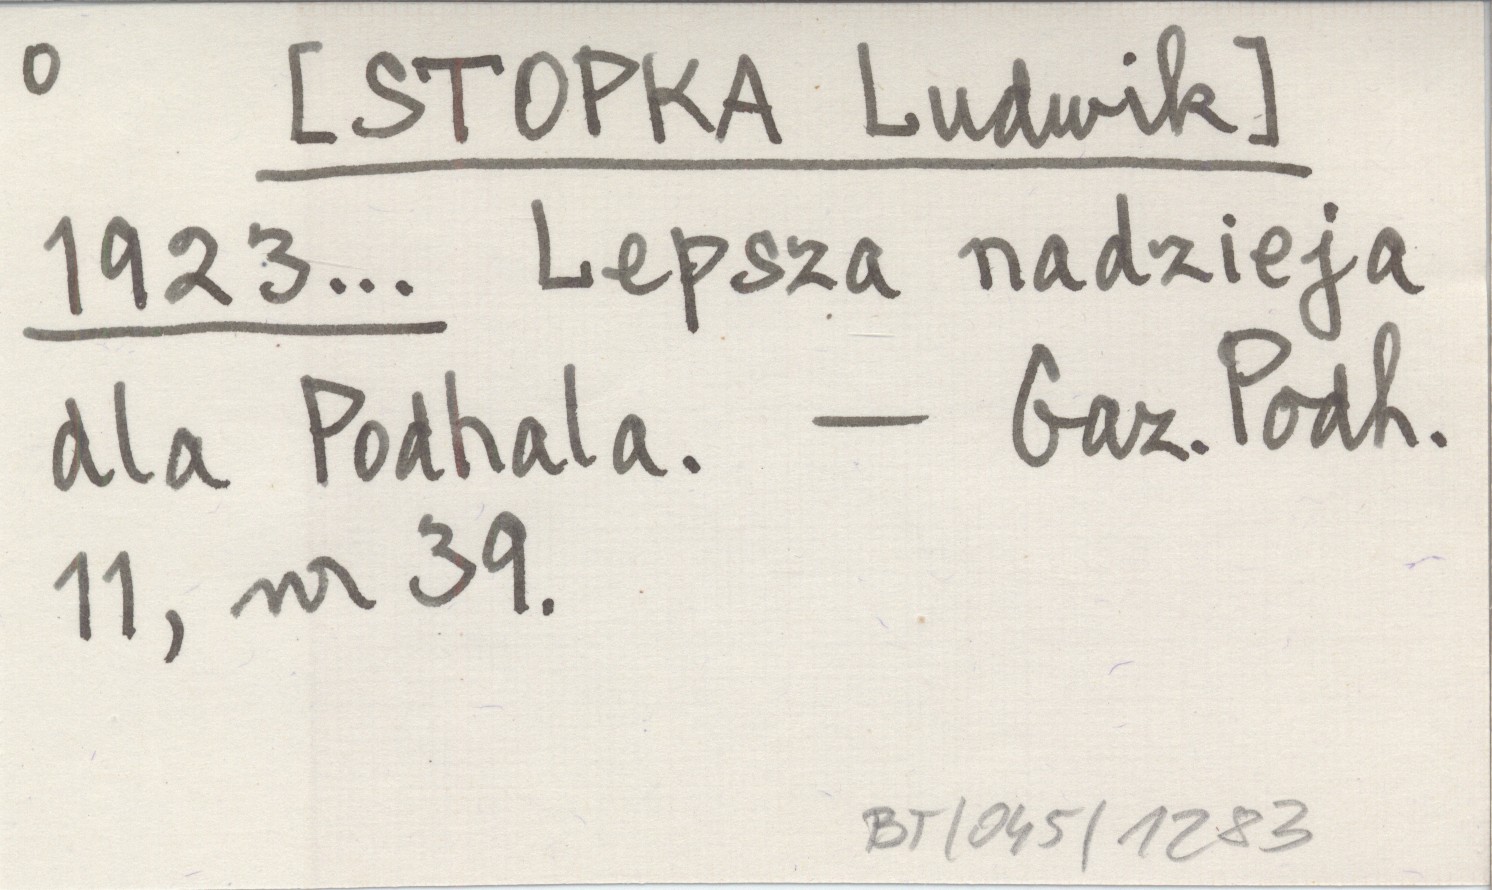 o [STOPKA Ludwik]
1923... Lepsza nadzieja
dla Podhala. — Gaz. Podh.
11, nr 39.
BT/045/1283